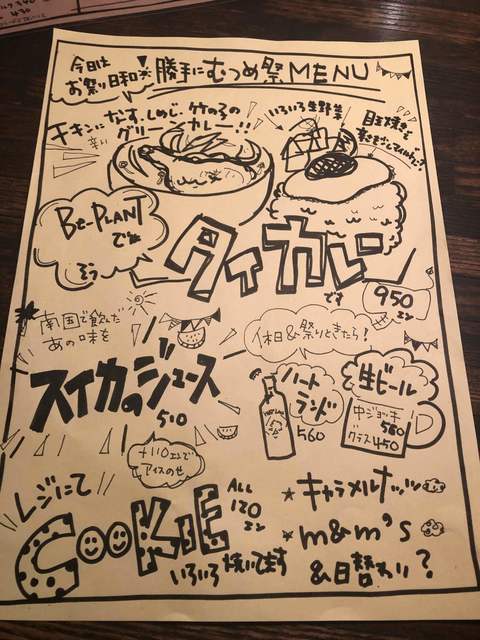 今日は
お祭り日和☀ 勝手にむつめ祭 MENU
チキンに なす、しめじ、竹の子の
辛い グリーンカレー!!
いろいろ生野菜
目玉焼きを
BE-PLANT
でね
ぞう
タイカレー
です
950
エン
南国で飲んだ
あの味を
スイカのジュース
510
+110エンで
アイスのせ
休日&祭りときたら!
ハート
ランド
560
生ビール
中ジョッキ
580
グラス 450
レジにて
COOKIE
ALL
120
エン
いろいろ焼いてます
★キャラメルナッツ
★m&m's
&日替わり?